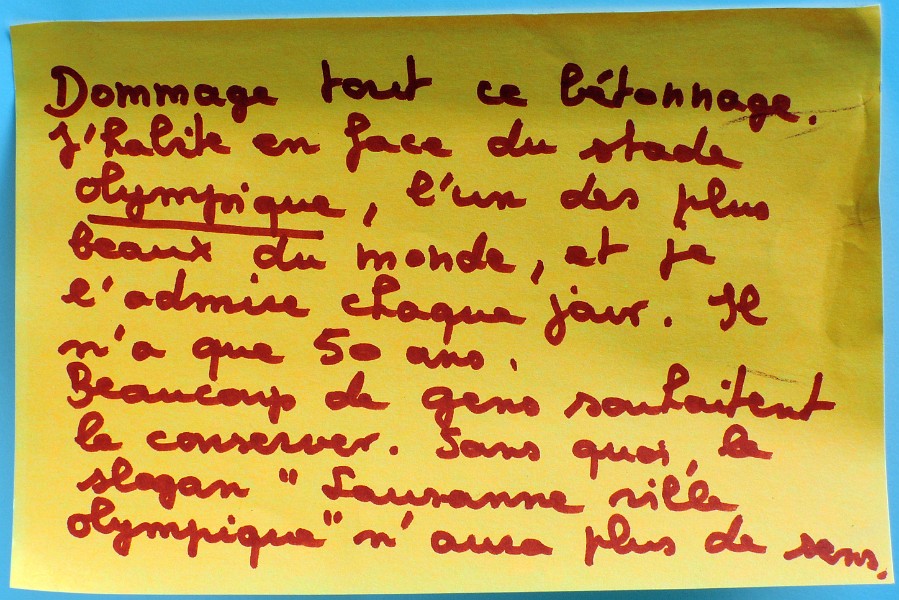 Dommage tout ce bétonnage.
J'habite en face du stade
olympique, l'un des plus
beaux du monde, et je
l'admire chaque jour. Il
n'a que 50 ans.
Beaucoup de gens souhaitent
le conserver. Sans quoi, le
slogan "Lausanne ville
olympique" n'aura plus de sens.